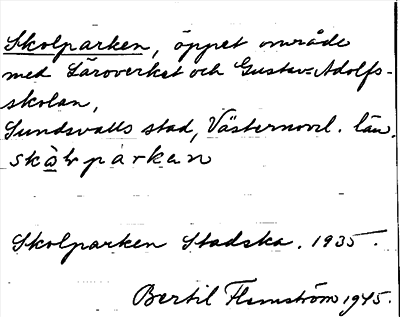 Skolparken, öppet område
med Läroverket och Gustav-Adolfs-
skolan,
Sundsvalls stad, Västernorrl. län.
parkan
Skolparken Stadska. 1935.
Bertil Flemström 1945.